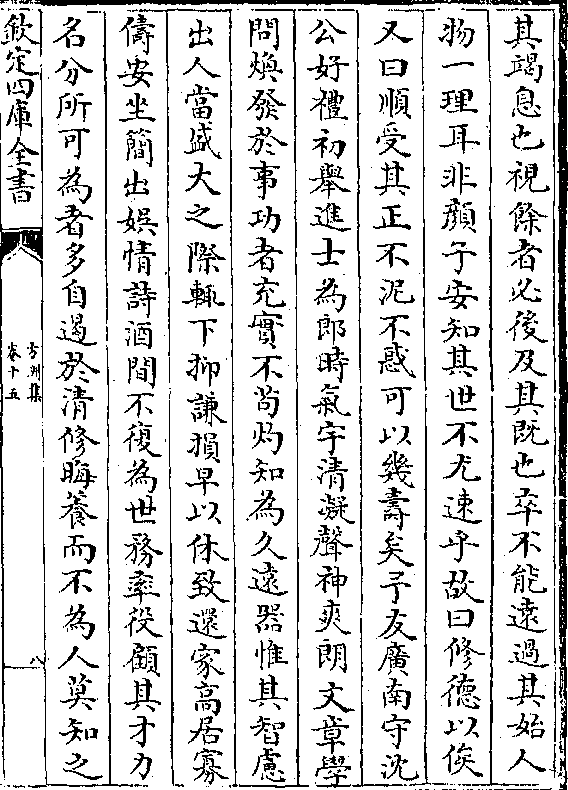 其竭息也視餘者必後及其既也卒不能遠過其始人
物一理耳非顔子安知其世不尤速乎故曰修德以俟
又曰順受其正不泥不惑可以幾壽矣予友廣南守沈
公好禮初舉進士為郎時氣宇清凝聲神爽朗文章學
問煥發於事功者充實不茍灼知為久遠器惟其智慮
出人當盛大之際輒下抑謙損早以休致還家高居寡
儔安坐簡出娯情詩酒間不復為世務牽役顧其才力
名分所可為者多自遏於清修晦養而不為人莫知之
欽定四庫全書
方洲集
卷十五
八